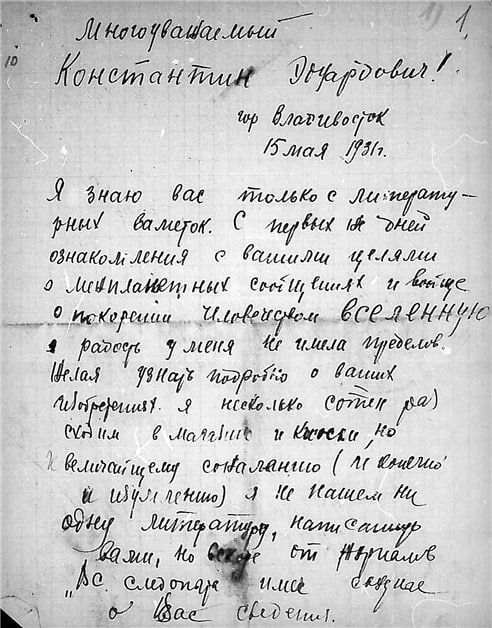 1) 1.
Многоуважаемый
10
Константин Эдуардович!
гор Владивосток
15 мая 1931г.
Я знаю вас только с литерату-
рных заметок. С первых же дней
ознакомления с вашими целями
о межпланетных сообщениях и вообще
о покорении человечеством вселенную
радость у меня не имела пределов.
Желая узнать подробно о ваших
изобретениях. я несколько сотен раз
сходил в магазине и киоски, но
к величайшему сожалению (и конечно
и изумлению) я не нашел ни
одну литературу, написанную
вами, но от журналов
"Вс. следопыта
о Вас сведения.